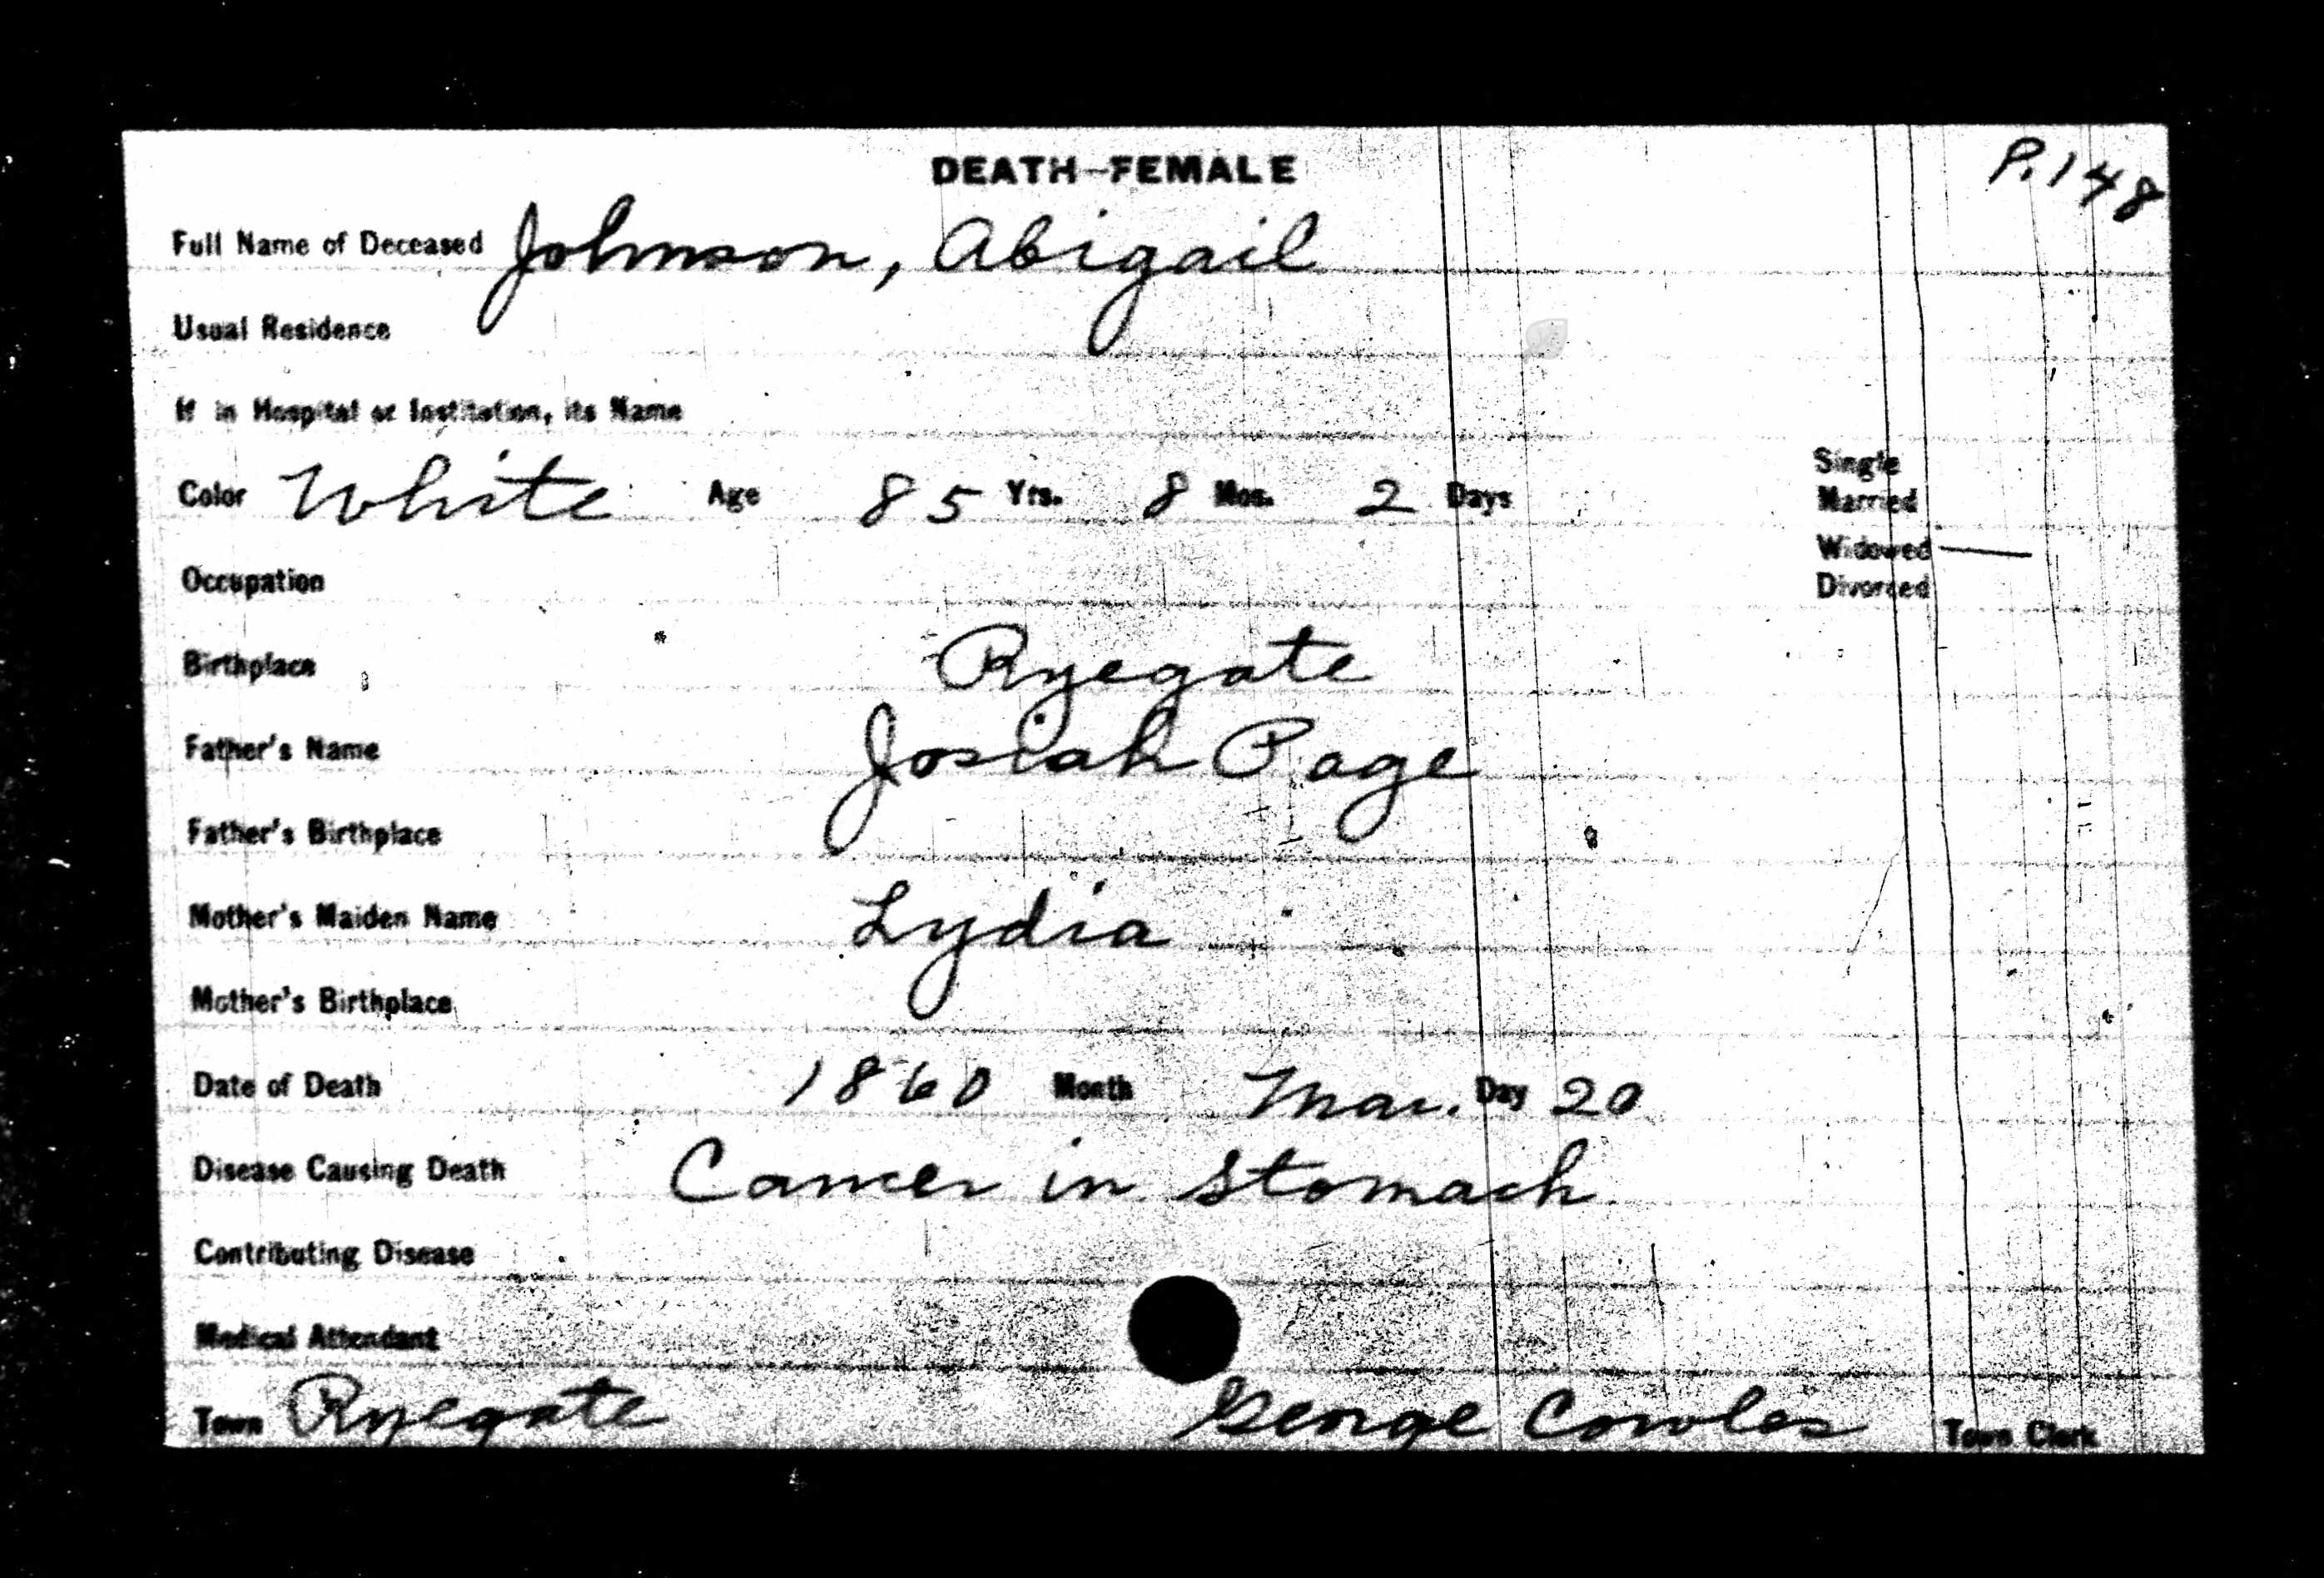 DEATH-FEMALE
P. 148
Full Name of Deceased Johnson, Abigail
Usual Residence
If in Hospital or Institution, its Name
Color White Age 85 Yrs. 8 Mos. 2 Days
Single
Married
Widowed —
Divorced
Occupation
Birthplace Ryegate
Father's Name Josiah Page
Father's Birthplace
Mother's Maiden Name Lydia
Mother's Birthplace
Date of Death 1860 Month Mar. Day 20
Disease Causing Death Cancer in Stomach
Contributing Disease
Medical Attendant
Town Ryegate George Cowles Town Clerk